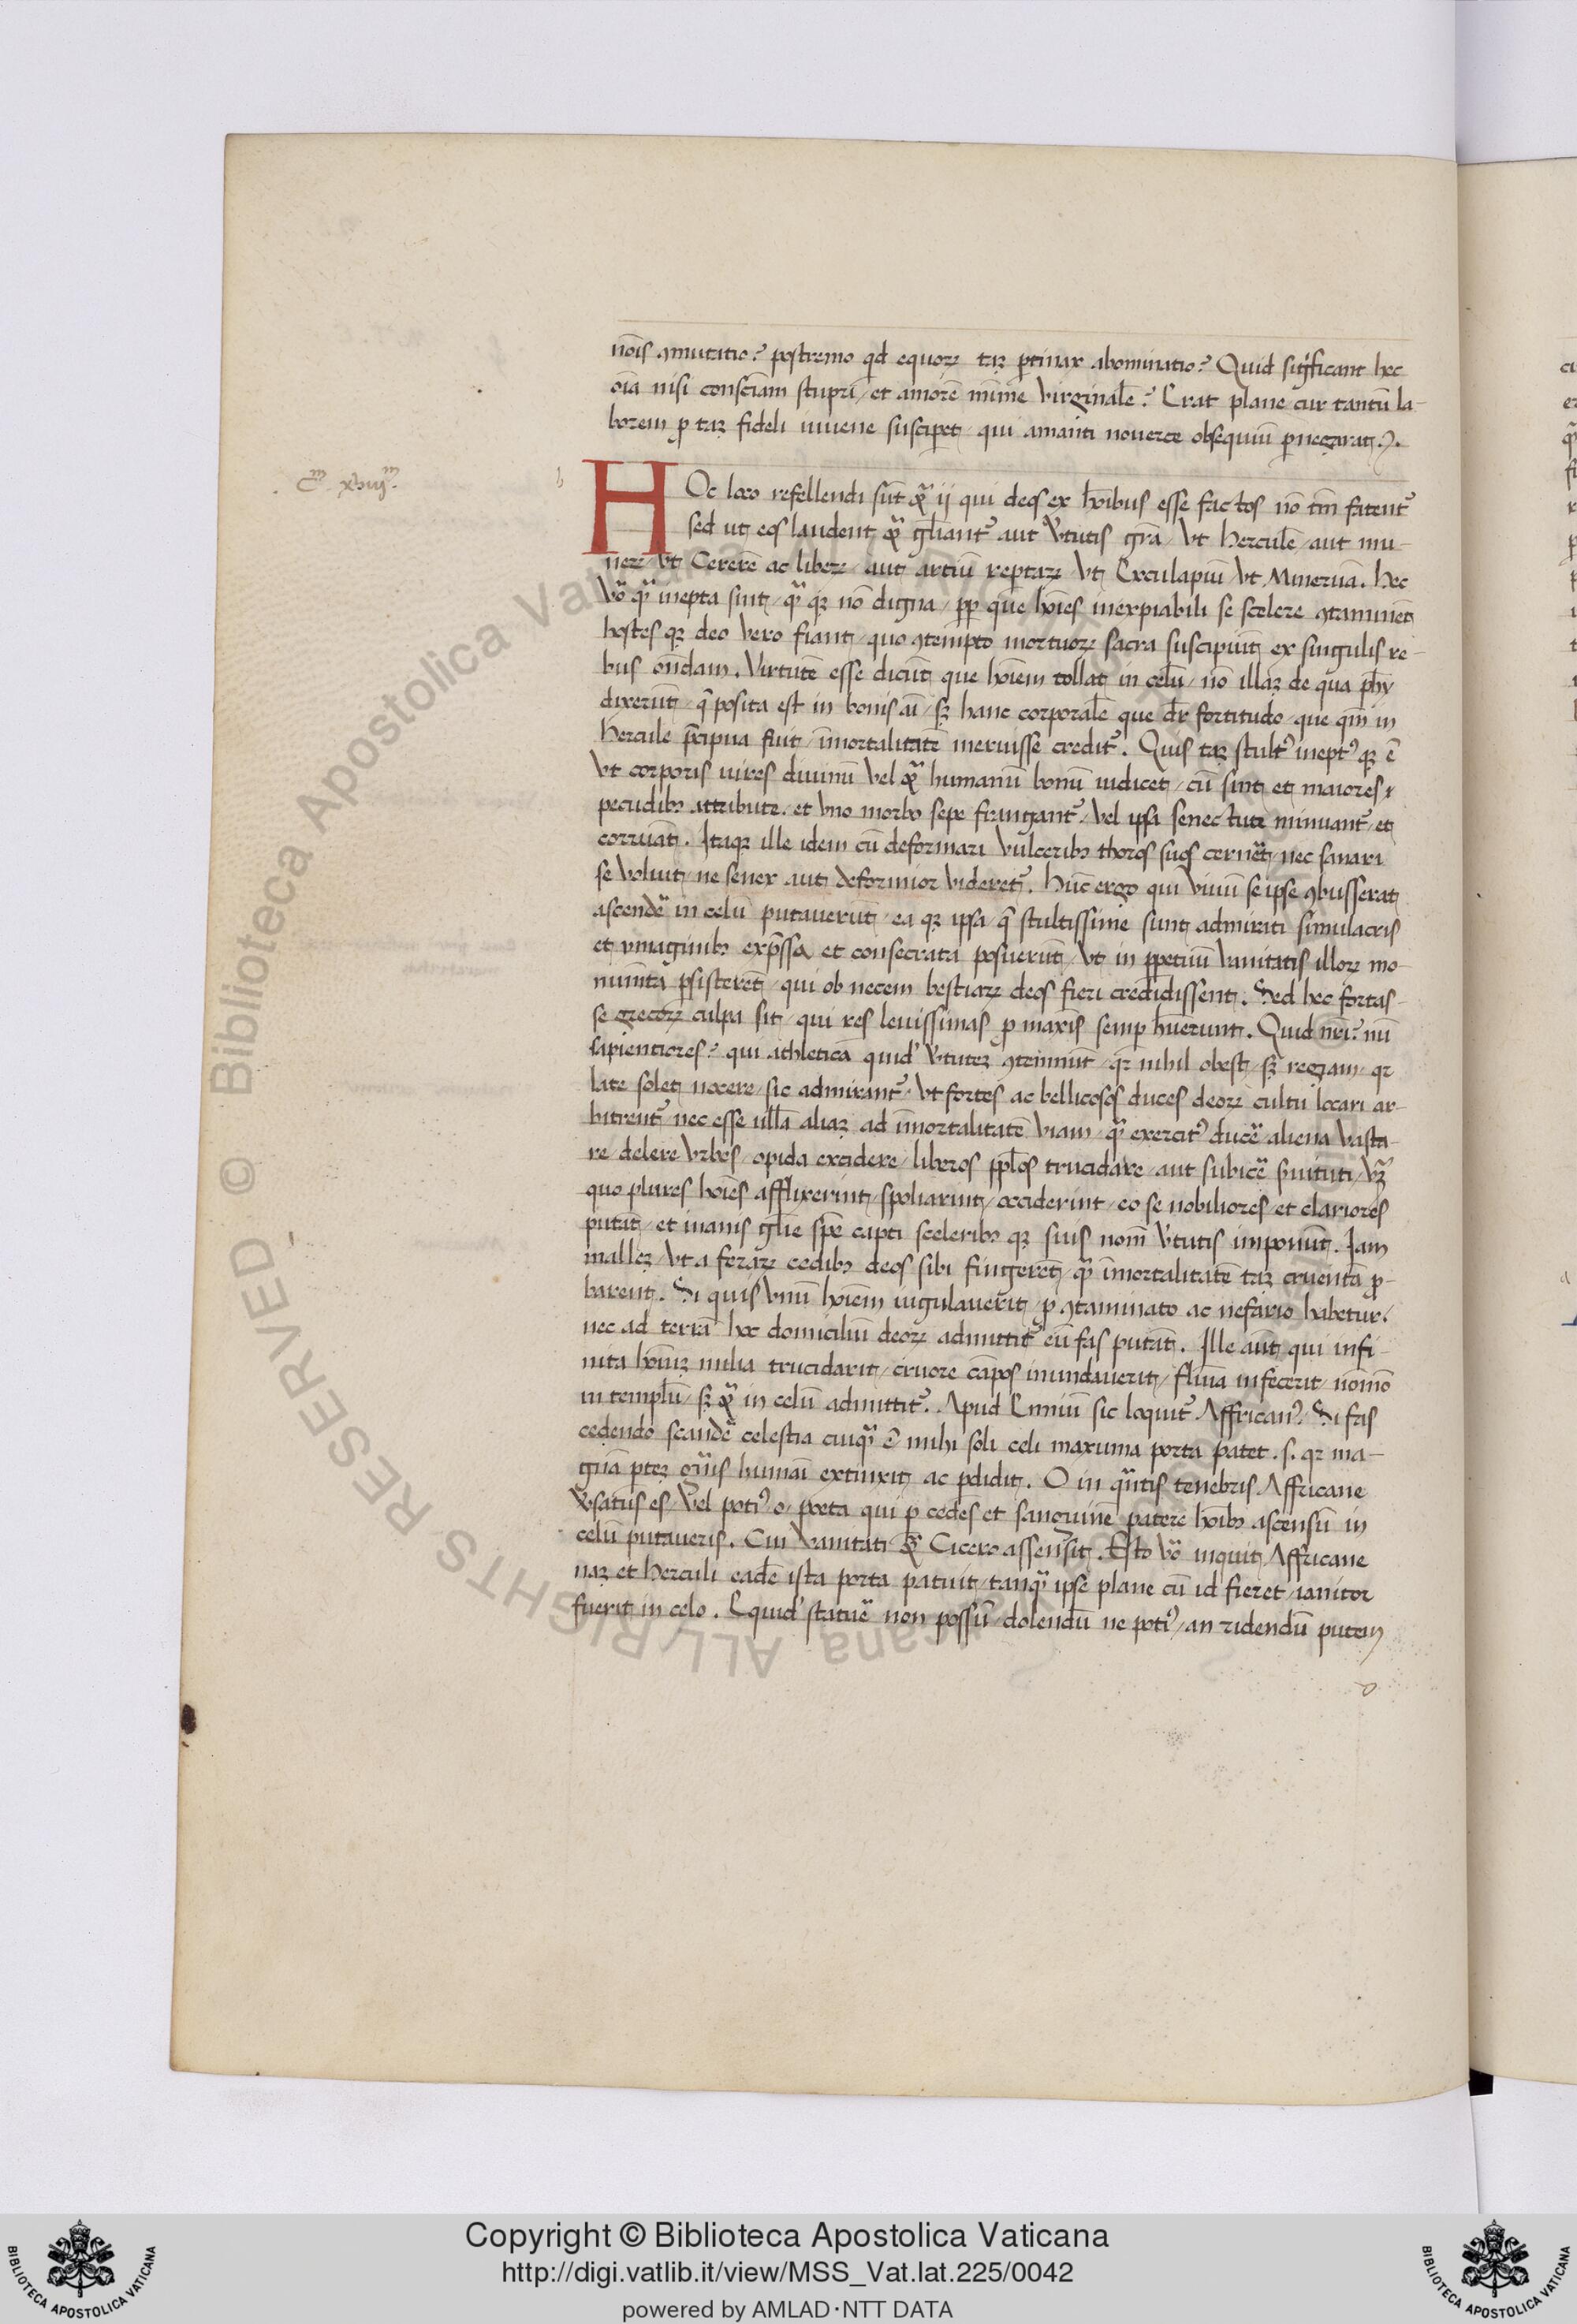 nōis ꝯmutatio? postremo qd equorꝝ taꝫ ꝑtinax abominatio? Quid significant hec
oīa nisi consciam stupri / et amorē mīmē virginalē? Erat plane cur tantū la-
borem ꝓ taꝫ fideli iuuene susciperet / qui amanti nouerce obsequiū ꝑnegarat.
Cm xviijm.
HOc loco refellendi sūt ij qui deos ex hoībus esse factos nō tm̄ fatentꝰ
sed ut eos laudent gliantꝰ aut v̄tutis grā / vt herculē / aut mu-
nerꝫ vt Cererē ac liberꝫ / aut artiū reptarꝫ vt Exculapiū vt Mineruā. hec
vō qꝫ inepta sint / qꝫ nō digna / ꝓp que hoīes inexpiabili se scelere ꝯtaminēt
hostes qꝫ deo vero fiant / quo ꝯtempto mortuorꝝ sacra suscipiūt ex singulis re-
bus on̄dam. Virtutē esse dicūt que hoīem tollat in celū / nō illaꝫ de qua phy
dixerūt / q̄ posita est in bonis aī / sꝫ hanc corporalē que dr̄ fortitudo / que qm̄ in
hercule p̄cipua fuit / īmortalitatē meruisse creditꝰ. Quis taꝫ stultꝰ ineptꝰ qꝫ ē
vt corporis uires diuinū vel humanū bonū iudicet / cū sint et maiores
pecudibꝫ attribute. et vno morbo sepe frangantꝰ / vel ipsa senectute minuantꝰ / et
corruāt. Itaqꝫ ille idem cū deformari vulceribꝫ thoros suos cerneret / nec sanari
se voluit / ne senex aut deformior videretꝰ. hūc ergo qui viuū se ipse ꝯbusserat
ascendē in celū putauerūt / ea qꝫ ipsa / q̄ stultissime sunt admirati simulacris
et ymaginibꝫ exp̄ssa et consecrata posuerūt / vt in ꝑpetuū vanitatis illorꝝ mo-
numēta ꝑsisterēt / qui ob necem bestiarꝝ deos fieri credidissent. Sed hec fortas-
se grecorꝝ culpa sit / qui res leuissimas ꝓ maxis semꝑ hūerunt. Quid nr̄i? nū
sapientiores? qui athleticā quidē v̄tuteꝫ ꝯtemnūt / qꝫ nihil obest / sꝫ regiam / qꝫ
late solet nocere / sic admirantꝰ / vt fortes ac bellicosos duces deorꝝ cultu locari ar-
bitrentꝰ nec esse ullā aliaꝫ ad īmortalitatē viam / exercitꝰ ducē aliena vasta-
re / delere vrbes / opida excidere / liberos pplos trucidare / aut subicē seruituti / vꝫ
quo plures hoīes afflixerint / spoliarint / occiderint / eo se nobiliores et clariores
putāt / et inanis glīe spē capti sceleribꝫ qꝫ suis nomē v̄tutis imponūt. Iam
malleꝫ / vt a ferarꝝ cedibꝫ deos sibi fingerēt / īmortalitatē taꝫ cruentā ꝓ-
barent. Si quis vnū hoīem iugulauerit / ꝓ ꝯtaminato ac nefario habetur /
nec ad terrā hoc domiciliū deorꝝ admittit eū fas putāt. Ille aūt qui infi-
nita hoīuꝫ milia trucidarit / cruore cāpos inundauerit / flumina infecerit / nōmō
in templū / sꝫ in celū admittitꝰ. Apud Enniū sic loquitꝰ Affricanꝰ. Si fas
cedendo scandē celestia cuiqꝫ ē / mihi soli celi maxuma porta patet. s. qꝫ ma-
gnā ꝑteꝫ gn̄is humāi extinxit ac ꝑdidit. O in qn̄tis tenebris Affricane
v̄satus es / vel potiꝰ o / poeta qui ꝑ cedes et sanguinē patere hoībꝫ ascensū in
celū putaueris. Cui vanitati Cicero assensit. Esto vō inquit Affricane
naꝫ et herculi eadē ista porta patuit / tanqꝫ ipse plane cū id fieret / ianitor
fuerit in celo. Equidē statuē non possū / dolendū ne potiꝰ / an ridendū putem
Copyright © Biblioteca Apostolica Vaticana
http://digi.vatlib.it/view/MSS_Vat.lat.225/0042
powered by AMLAD·NTT DATA
BIBLIOTECA APOSTOLICA VATICANA
BIBLIOTECA APOSTOLICA VATICANA